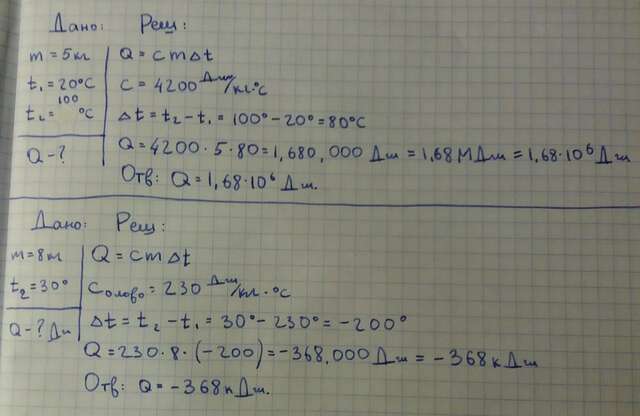 Дано: Реш:
m = 5кг Q = cmΔt
t₁ = 20°C c = 4200 Дж/кг·°C
t₂ = 100 °C Δt = t₂ - t₁ = 100° - 20° = 80°C
Q - ? Q = 4200 · 5 · 80 = 1,680,000 Дж = 1,68 МДж = 1,68·10⁶ Дж
Отв: Q = 1,68·10⁶ Дж.
Дано: Реш:
m = 8кг Q = cmΔt
t₂ = 30° Cолово = 230 Дж/кг·°C
Q - ? Дж Δt = t₂ - t₁ = 30° - 230° = -200°
Q = 230 · 8 · (-200) = -368,000 Дж = -368 кДж
Отв: Q = -368кДж.